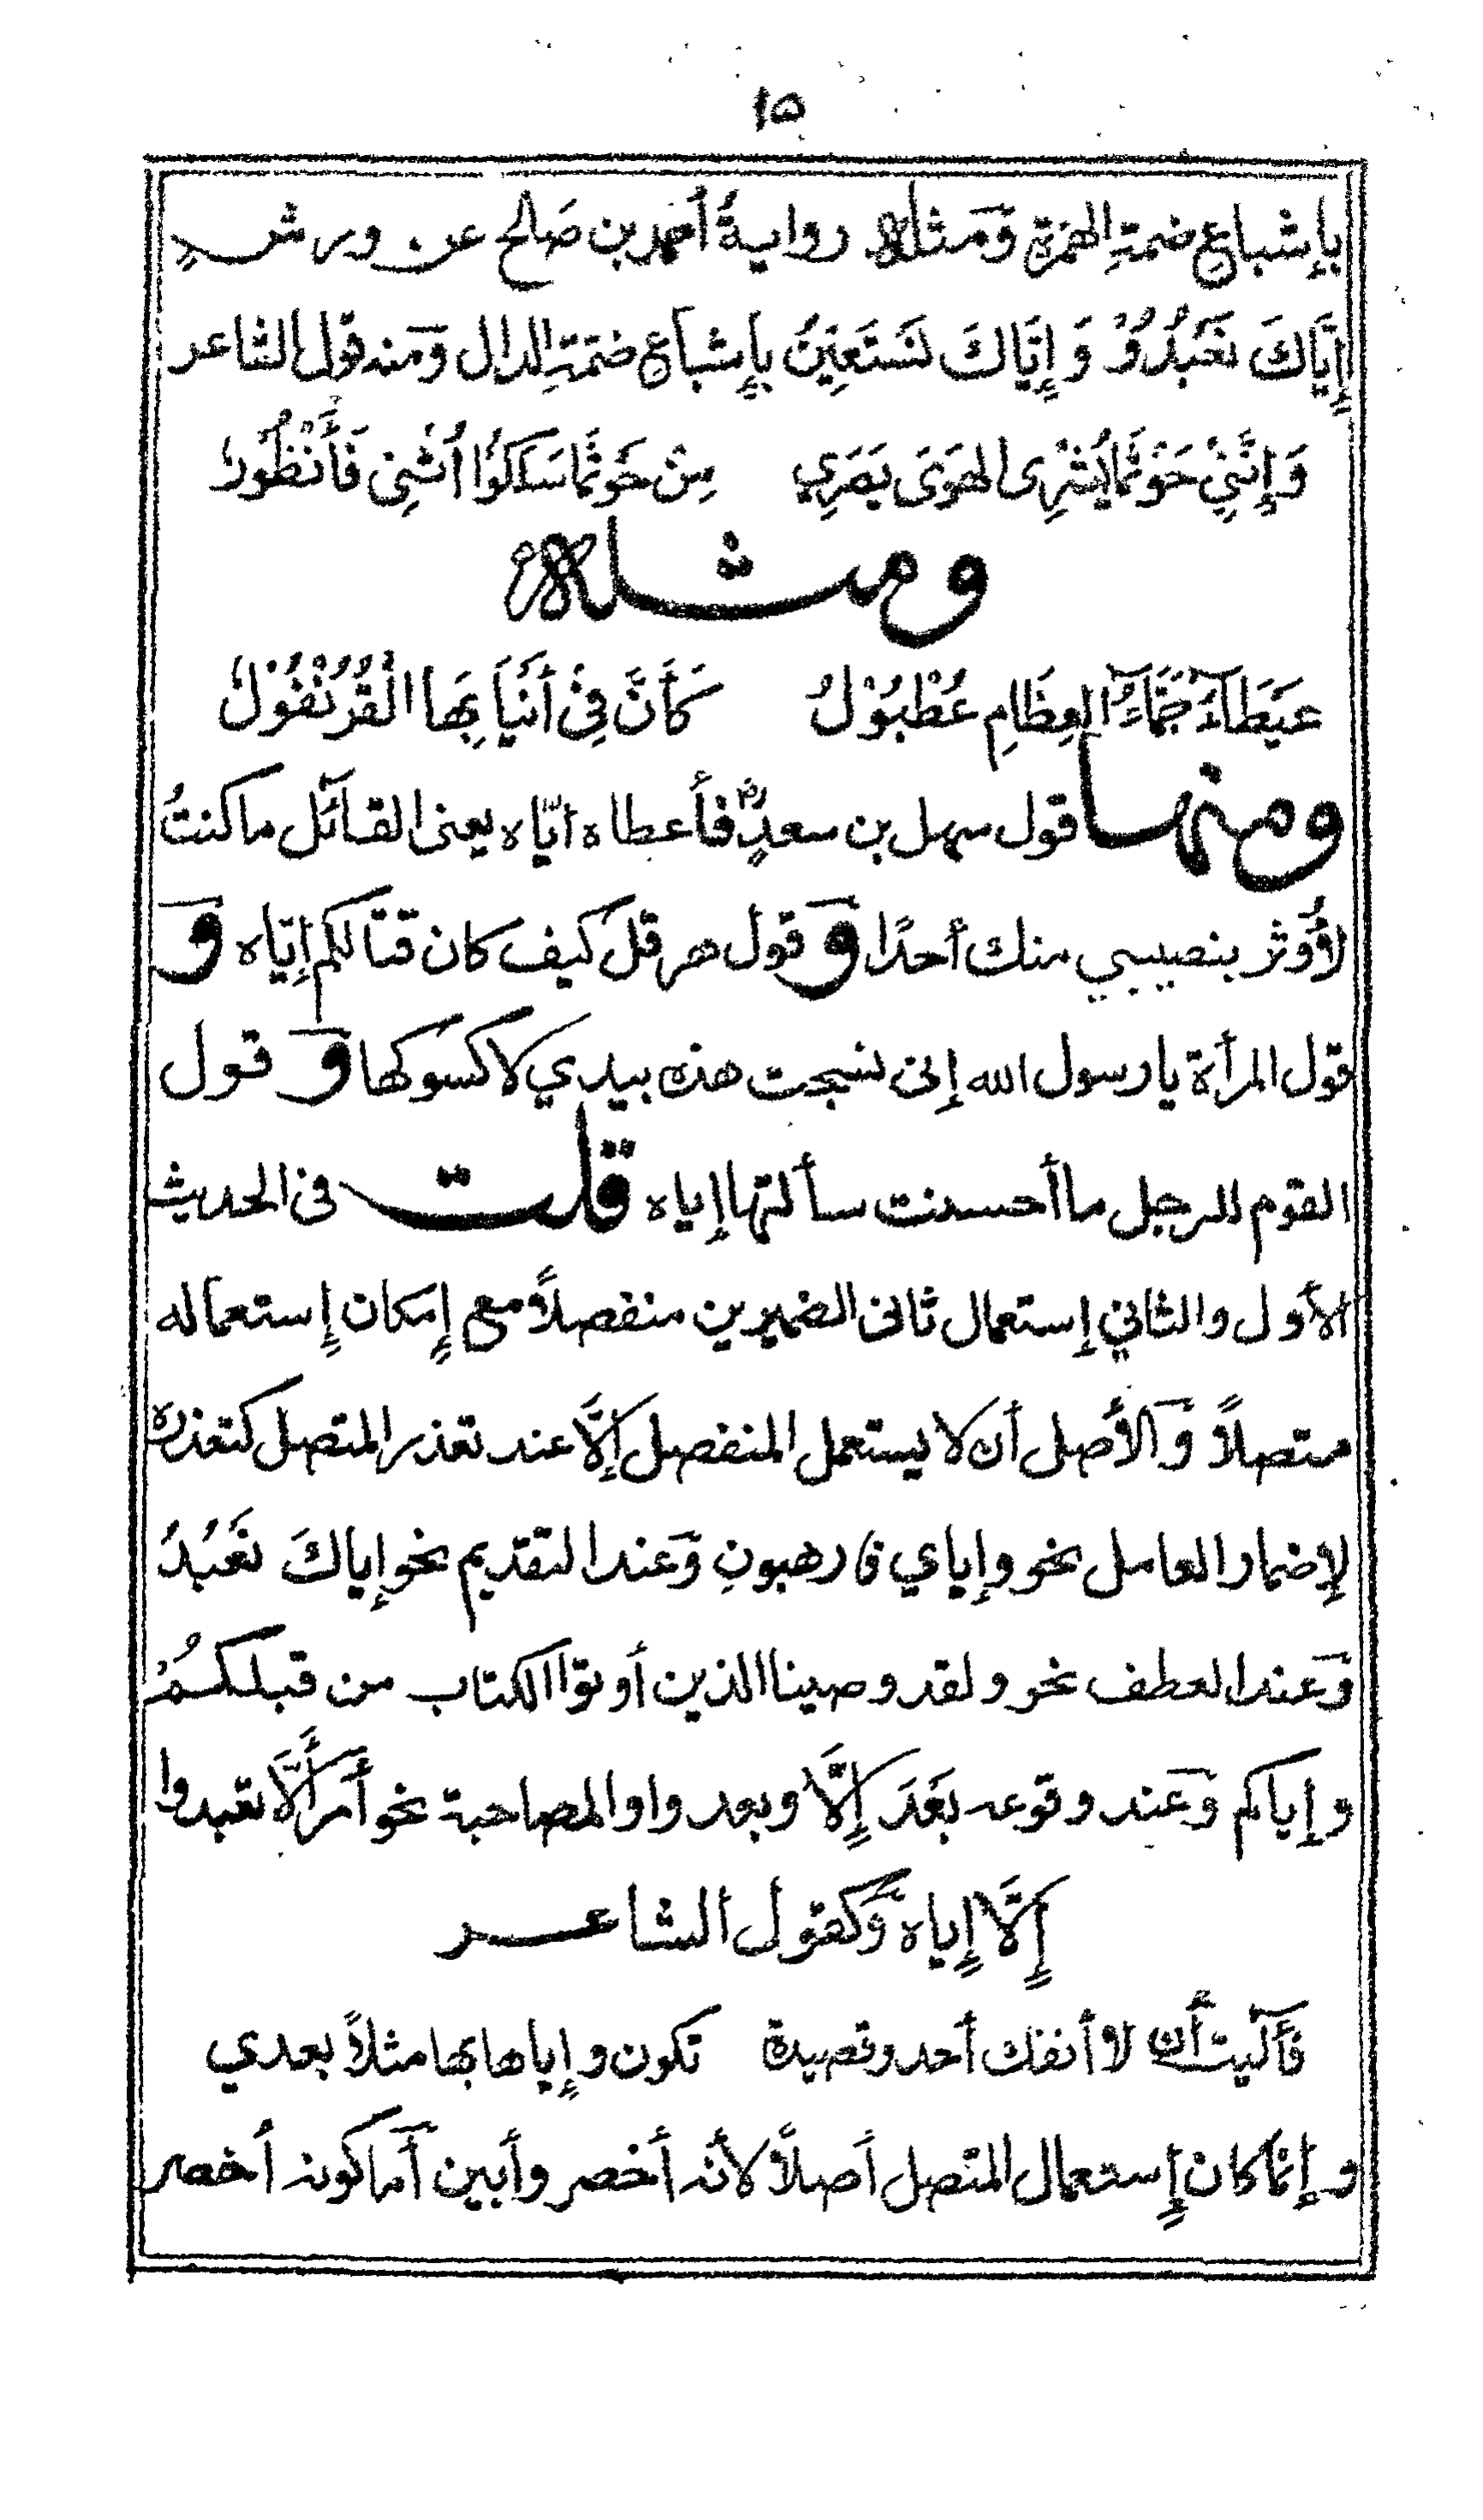 ١٥
بإشباع ضمةِ الهمزةِ وَمثله روايةُ أحمد بن صَالح عن ورشٍ
إِيَّاكَ نَعْبُدُوْ وَإِيَّاكَ نَسْتَعِيْنُ بإِشباع ضمّةِ الدال وَمنه قول الشاعر
وَإِنَّنِيْ حَوْثُمَا يُشْرِى الهَوَى بَصَرِي مِنْ حَوثُمَا سَلَكُوْا أُثْنِى فَأَنْظُوْرُ
ومثله
عَيْطَاءُ جَمَّاءُ العِظَامِ عُطْبُوْلُ كَأَنَّ فِيْ أَنْيَابِهَا الْقُرُنْفُوْلُ
ومنها قول سهل بن سعدٍ رض فأعطاه ايّاه يعنى القائل ما كنتُ
لأُوثر بنصيبي منك أحدًا وَ قول هرقل كيف كان قتالكم إيّاه وَ
قول المرأة يا رسول الله إنى نسجت هذه بيدي لاكسوكها وَ قول
القوم للرجل ما أحسنت سألتها إياه قلت فى الحديث
الأول والثاني إستعمال ثانى الضميرين منفصلاً مع إمكان إستعماله
متصلاً وَالأصل أن لا يستعمل المنفصل إلَّا عند تعذر المتصل كتعذره
لإضمار العامل نحو وإياي فارهبونِ وَعند التقديم نحو إياكَ نَعْبُدُ
وَعند العطف نحو ولقد وصينا الذين أوتوا الكتاب من قبلكُمْ
وإياكم وَعند وقوعه بَعَدَ إلَّا وبعد واو المصاحبة نحو أَمَرَ أَلَّا تعبدوا
إلَّا إياه وَكقول الشاعر
فآليت أن لا أنفك أحدو قصيدة تكون وإياها بها مثلاً بعدي
وإنما كان إستعمال المتصل أصلاً لأنه أخصر وأبين أما كونه أخصر